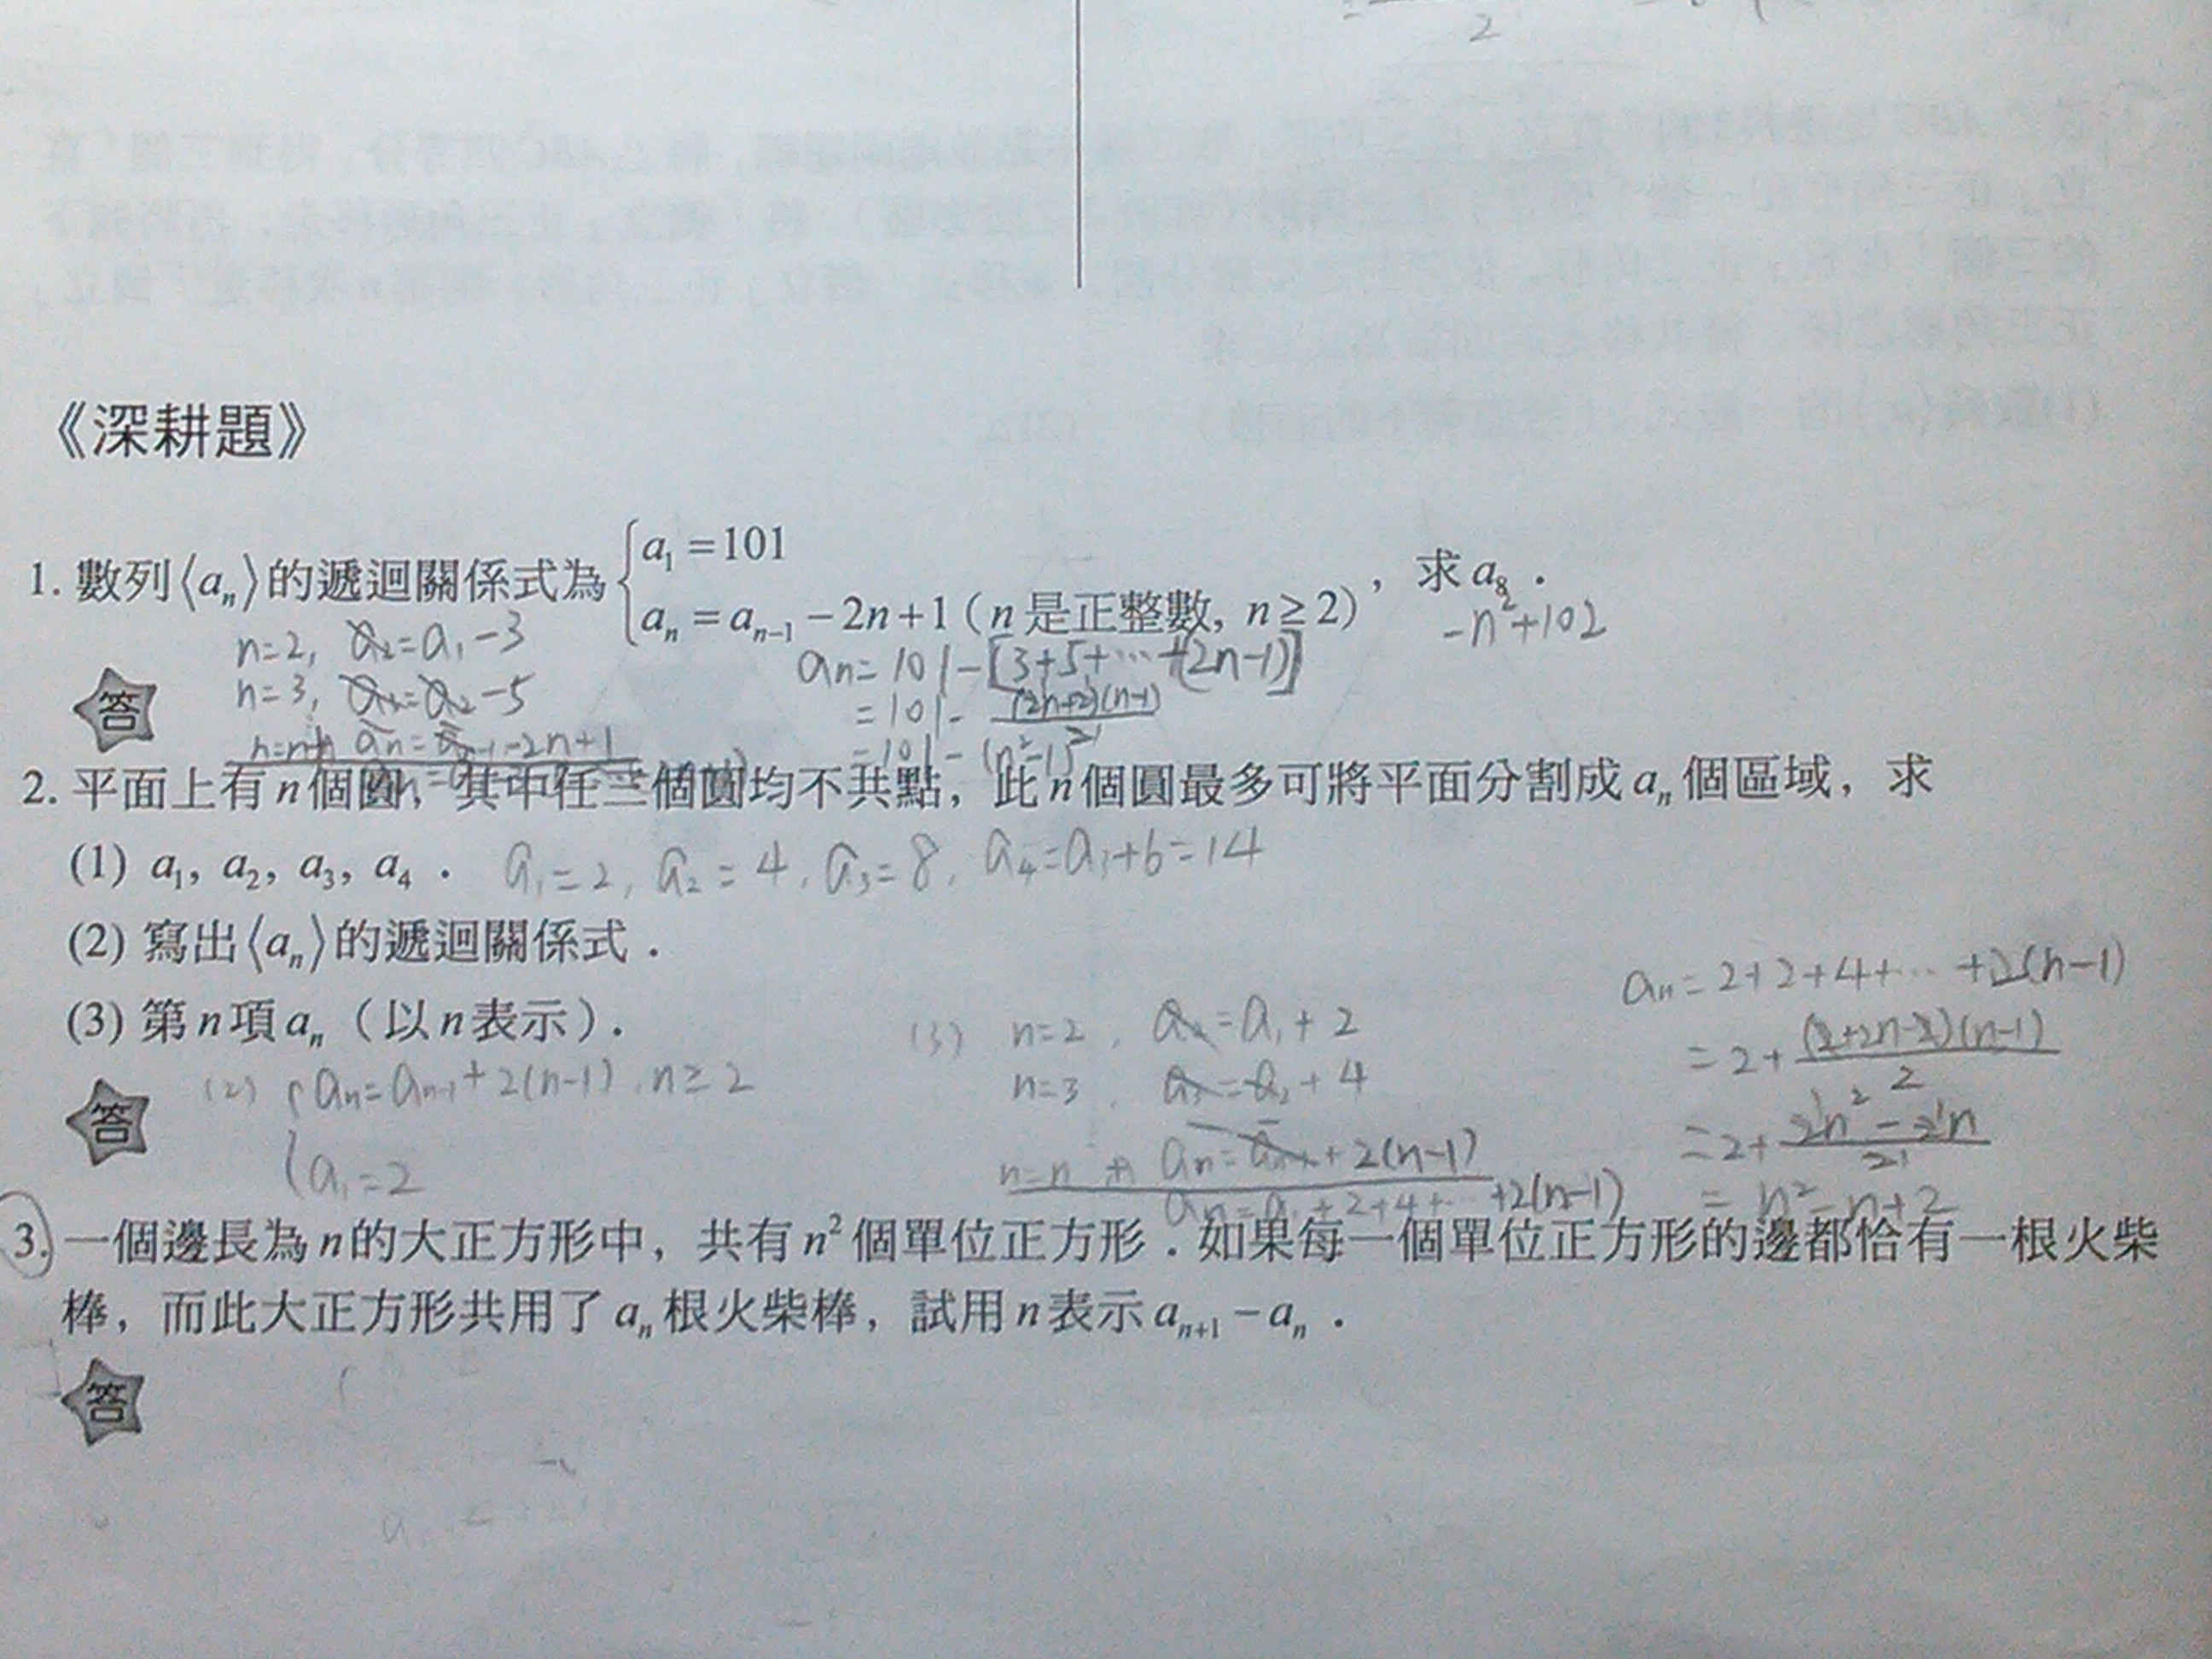 2
《深耕題》
1. 數列⟨aₙ⟩的遞迴關係式為 { a₁ = 101
aₙ = aₙ₋₁ − 2n + 1（n 是正整數, n ≥ 2） ，求 a₈．
−n²+102
n=2, a₂=a₁−3
n=3, a₃=a₂−5
n=n aₙ=aₙ₋₁−2n+1
aₙ=101−[3+5+⋯+(2n−1)]
=101−(2n+2)(n−1)/2
=101−(n²−1)
答
2. 平面上有 n 個圓，其中任三個圓均不共點，此 n 個圓最多可將平面分割成 aₙ 個區域，求
(1) a₁, a₂, a₃, a₄．
a₁=2, a₂=4, a₃=8, a₄=a₃+6=14
(2) 寫出⟨aₙ⟩的遞迴關係式．
(3) 第 n 項 aₙ（以 n 表示）．
答
(2) { aₙ=aₙ₋₁+2(n−1), n≥2
a₁=2
(3) n=2, a₂=a₁+2
n=3, a₃=a₂+4
n=n aₙ=aₙ₋₁+2(n−1)
aₙ=a₁+2+4+⋯+2(n−1)
aₙ=2+2+4+⋯+2(n−1)
=2+(2+2n−2)(n−1)/2
=2+2n²−2n/2
=n²−n+2
3. 一個邊長為 n 的大正方形中，共有 n² 個單位正方形．如果每一個單位正方形的邊都恰有一根火柴
棒，而此大正方形共用了 aₙ 根火柴棒，試用 n 表示 aₙ₊₁ − aₙ．
答